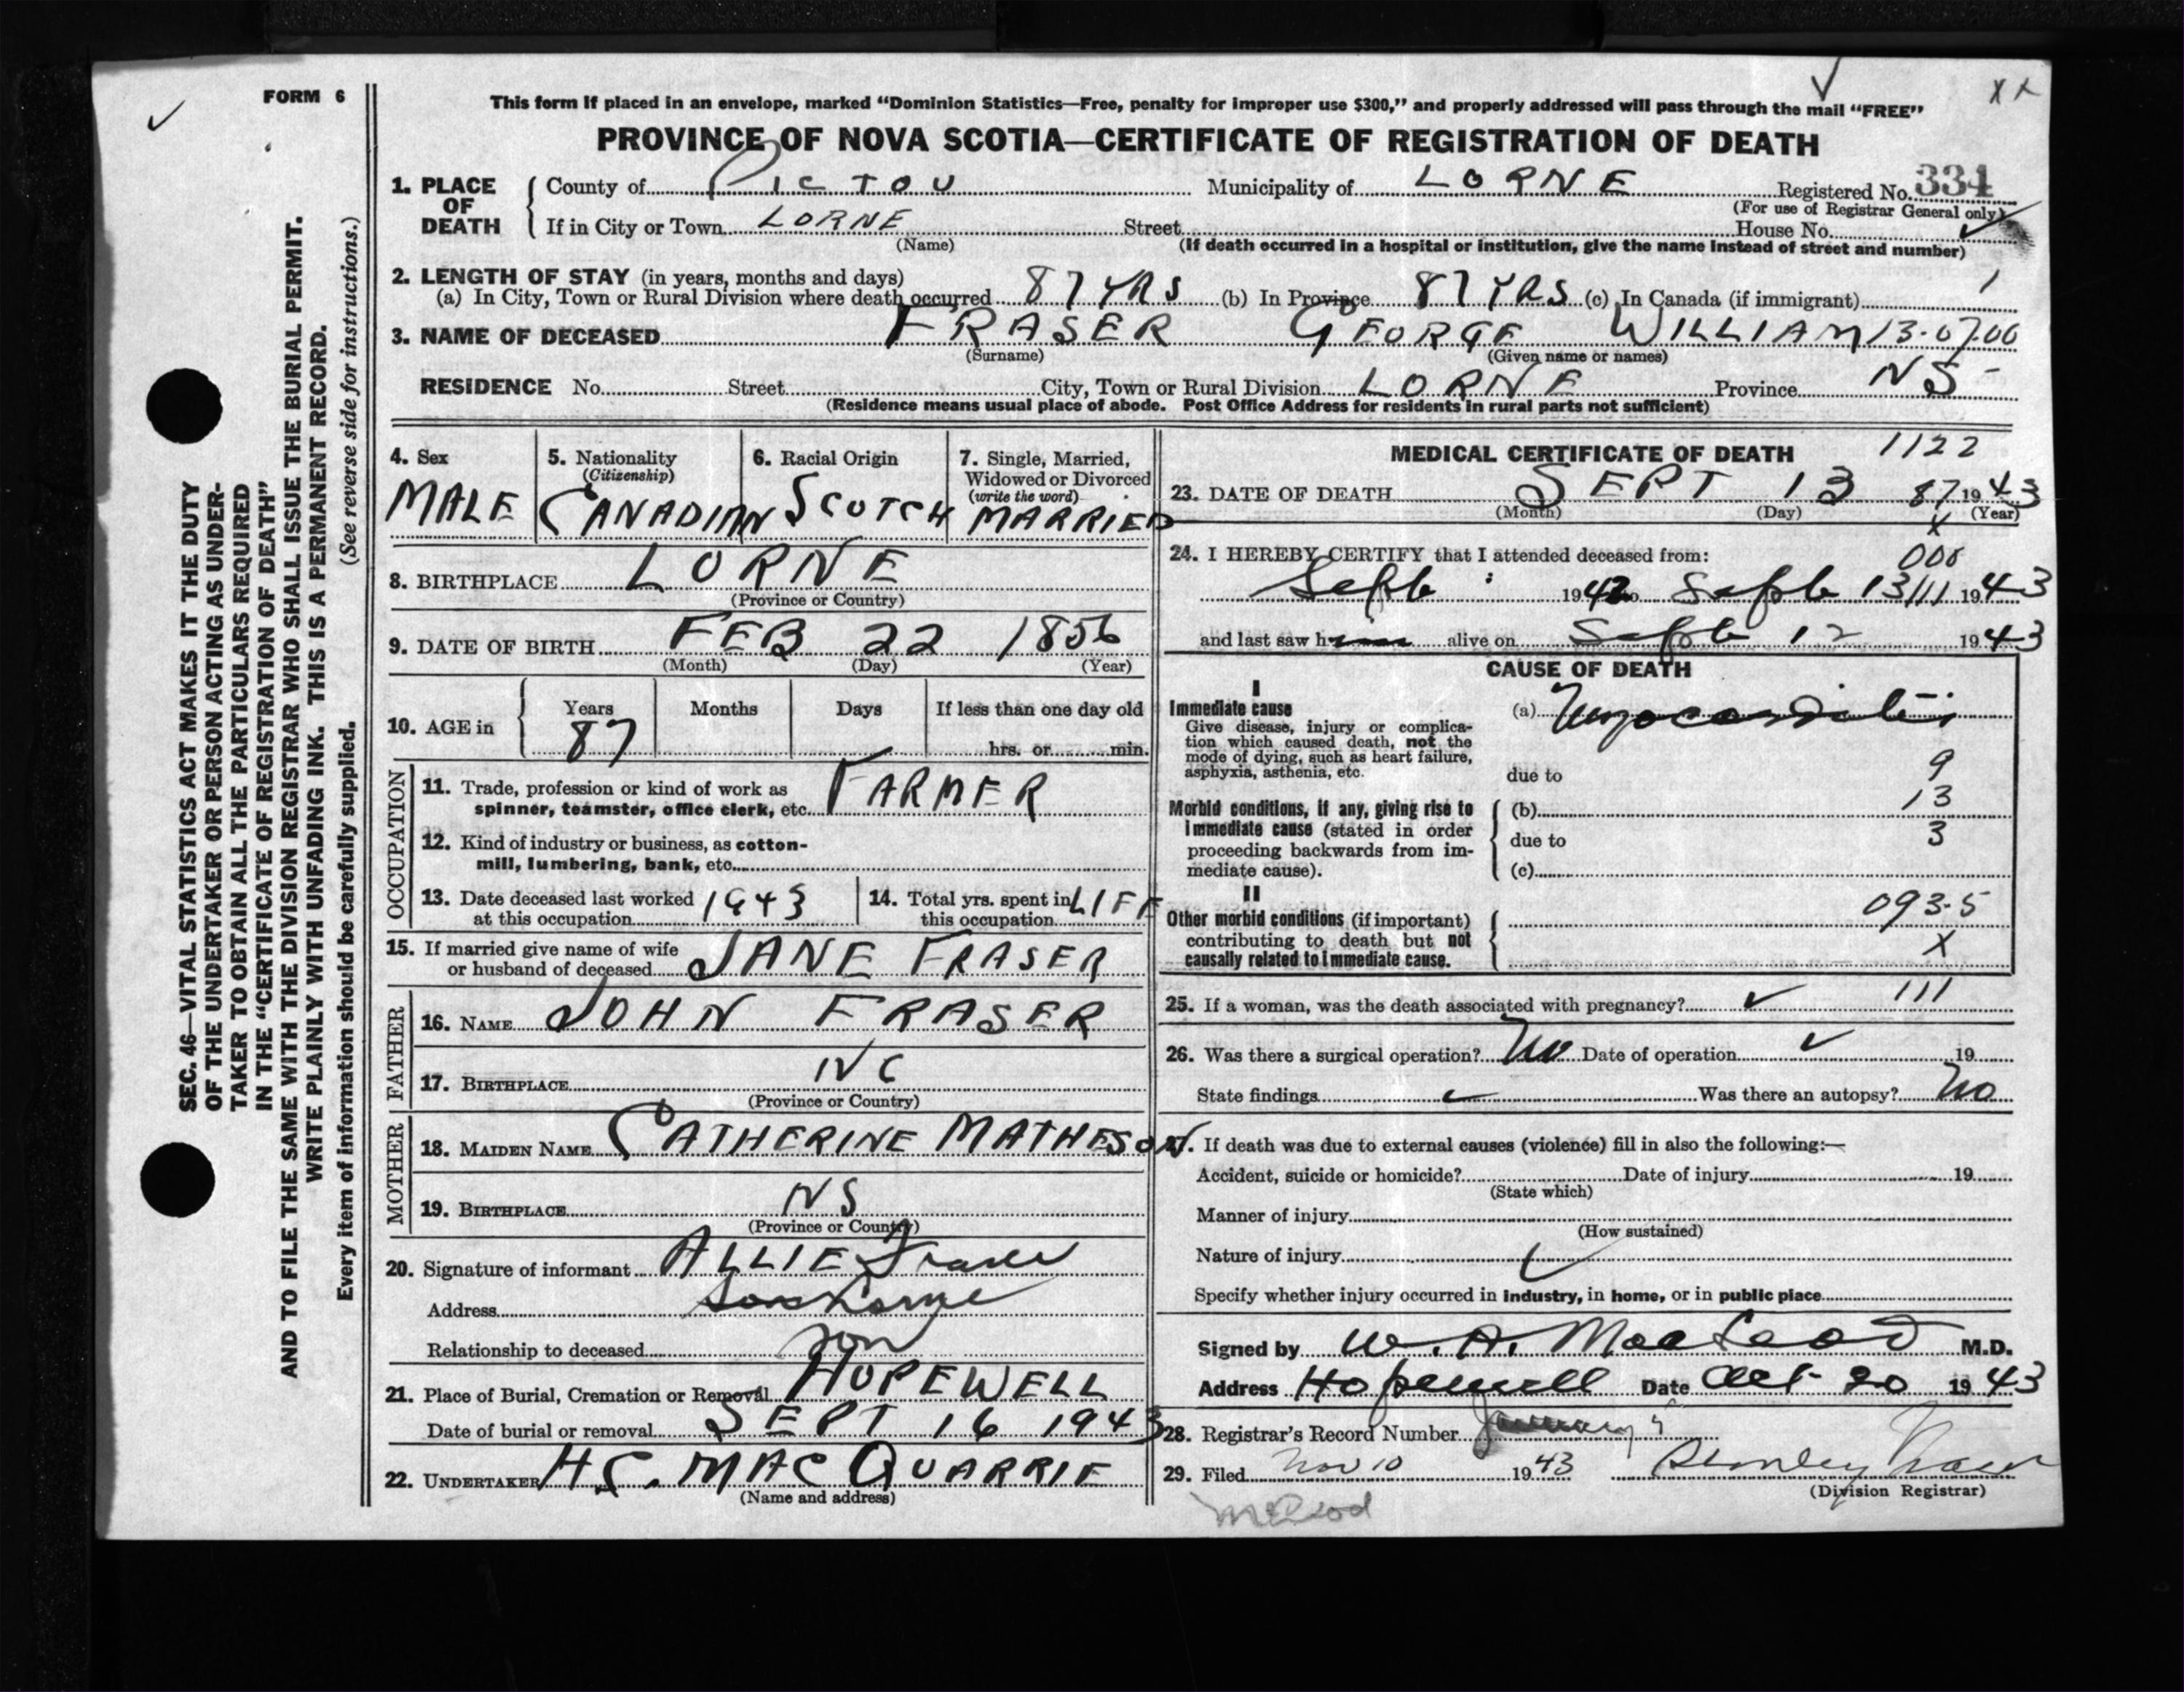 FORM 6
This form if placed in an envelope, marked “Dominion Statistics—Free, penalty for improper use $300,” and properly addressed will pass through the mail “FREE”
PROVINCE OF NOVA SCOTIA—CERTIFICATE OF REGISTRATION OF DEATH
SEC. 46—VITAL STATISTICS ACT MAKES IT THE DUTY
OF THE UNDERTAKER OR PERSON ACTING AS UNDER-
TAKER TO OBTAIN ALL THE PARTICULARS REQUIRED
IN THE “CERTIFICATE OF REGISTRATION OF DEATH”
AND TO FILE THE SAME WITH THE DIVISION REGISTRAR WHO SHALL ISSUE THE BURIAL PERMIT.
WRITE PLAINLY WITH UNFADING INK. THIS IS A PERMANENT RECORD.
Every item of information should be carefully supplied. (See reverse side for instructions.)
1. PLACE OF DEATH
County of PICTOU Municipality of LORNE Registered No. 334
(For use of Registrar General only)
If in City or Town LORNE Street House No.
(Name) (If death occurred in a hospital or institution, give the name instead of street and number)
2. LENGTH OF STAY (in years, months and days)
(a) In City, Town or Rural Division where death occurred 87 YRS (b) In Province 87 YRS (c) In Canada (if immigrant)
3. NAME OF DECEASED FRASER GEORGE WILLIAM 13-07.00
(Surname) (Given name or names)
RESIDENCE No. Street City, Town or Rural Division LORNE Province NS
(Residence means usual place of abode. Post Office Address for residents in rural parts not sufficient)
4. Sex
MALE
5. Nationality
(Citizenship)
CANADIAN
6. Racial Origin
SCOTCH
7. Single, Married,
Widowed or Divorced
(write the word)
MARRIED
8. BIRTHPLACE LORNE
(Province or Country)
9. DATE OF BIRTH FEB 22 1856
(Month) (Day) (Year)
10. AGE in Years Months Days If less than one day old
87 hrs. or min.
OCCUPATION
11. Trade, profession or kind of work as
spinner, teamster, office clerk, etc. FARMER
12. Kind of industry or business, as cotton-
mill, lumbering, bank, etc.
13. Date deceased last worked
at this occupation 1943
14. Total yrs. spent in
this occupation LIFE
15. If married give name of wife
or husband of deceased JANE FRASER
FATHER
16. NAME JOHN FRASER
17. BIRTHPLACE
(Province or Country)
MOTHER
18. MAIDEN NAME CATHERINE MATHESON
19. BIRTHPLACE NS
(Province or Country)
20. Signature of informant ALLIE Fraser
Address Lorne
Relationship to deceased son
21. Place of Burial, Cremation or Removal HOPEWELL
Date of burial or removal SEPT 16 1943
22. UNDERTAKER H.C. MACQUARRIE
(Name and address)
MEDICAL CERTIFICATE OF DEATH 1122
23. DATE OF DEATH SEPT 13 87 1943
(Month) (Day) (Year)
X
24. I HEREBY CERTIFY that I attended deceased from: 000
Septb 1942 to Septb 13 111 1943
and last saw him alive on Septb 12 1943
CAUSE OF DEATH
I
Immediate cause (a) Myocarditis
Give disease, injury or complica-
tion which caused death, not the
mode of dying, such as heart failure,
asphyxia, asthenia, etc.
due to 9
Morbid conditions, if any, giving rise to
immediate cause (stated in order
proceeding backwards from im-
mediate cause).
(b) 13
due to 3
(c)
II
Other morbid conditions (if important)
contributing to death but not
causally related to immediate cause.
093.5
X
25. If a woman, was the death associated with pregnancy? 111
26. Was there a surgical operation? No Date of operation 19
State findings Was there an autopsy? No
27. If death was due to external causes (violence) fill in also the following:—
Accident, suicide or homicide? Date of injury 19
(State which)
Manner of injury
(How sustained)
Nature of injury
Specify whether injury occurred in industry, in home, or in public place
Signed by W. A. MacLeod M.D.
Address Hopewell Date Oct 20 1943
28. Registrar’s Record Number
29. Filed Nov 10 1943 Stanley Fraser
(Division Registrar)
McLeod